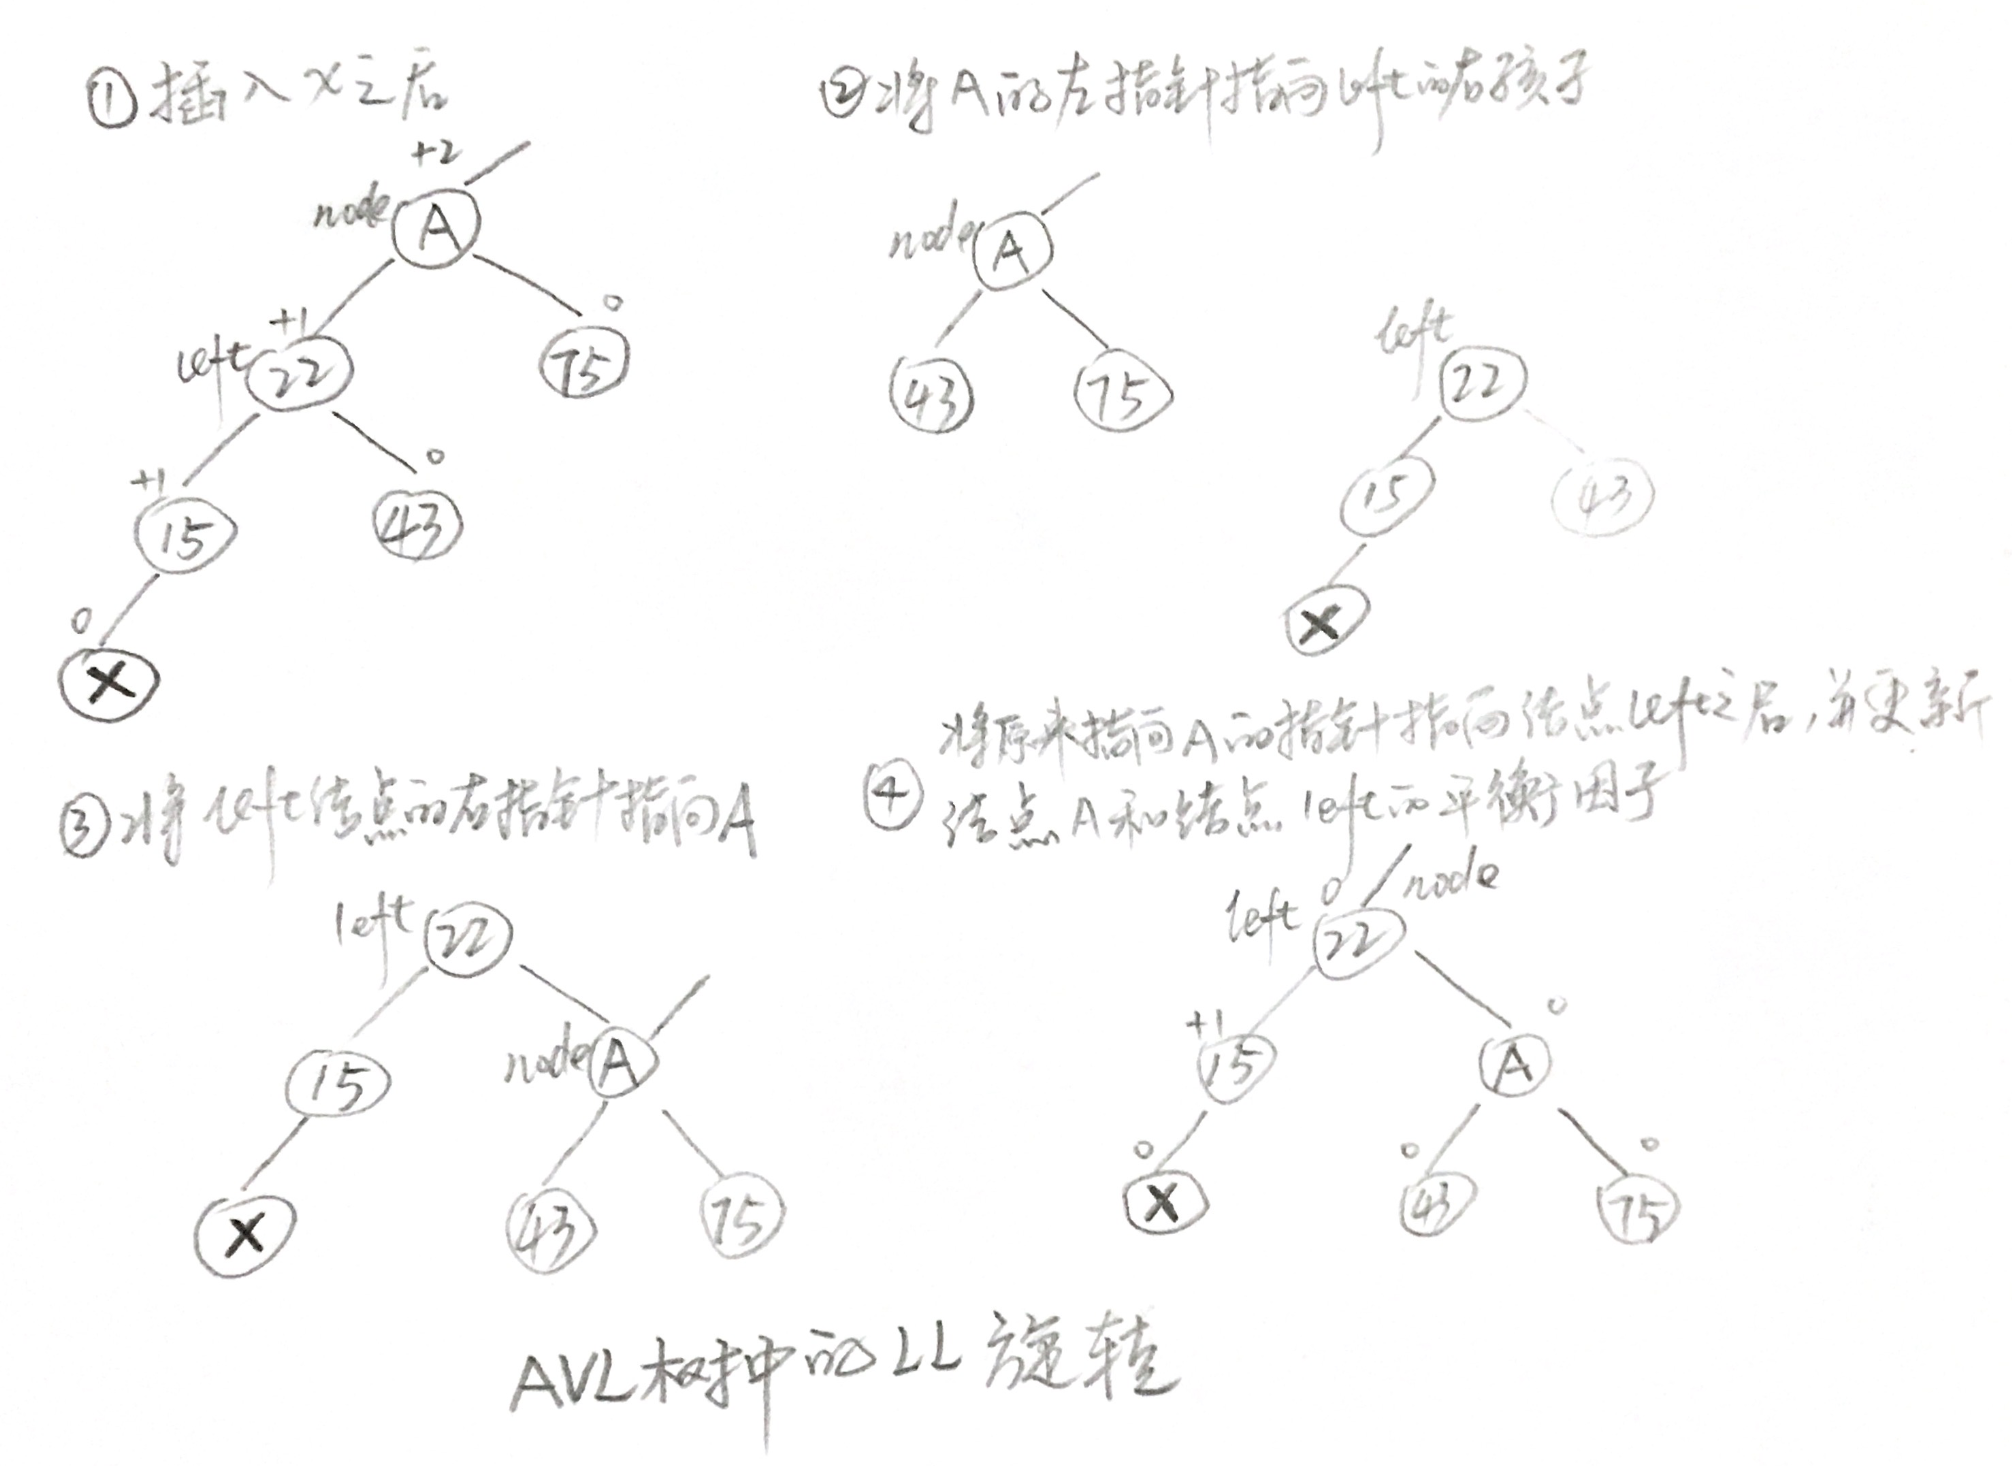 ①插入X之后
+2
node
A
+1
left
22
0
75
+1
15
0
43
0
X
②将A的左指针指向left的右孩子
node
A
43
75
left
22
15
43
X
③将left结点的右指针指向A
left
22
15
node
A
X
43
75
④将原来指向A的指针指向结点left之后,并更新
结点A和结点left的平衡因子
left
0
node
22
+1
15
0
A
0
X
0
43
0
75
AVL树中的LL旋转